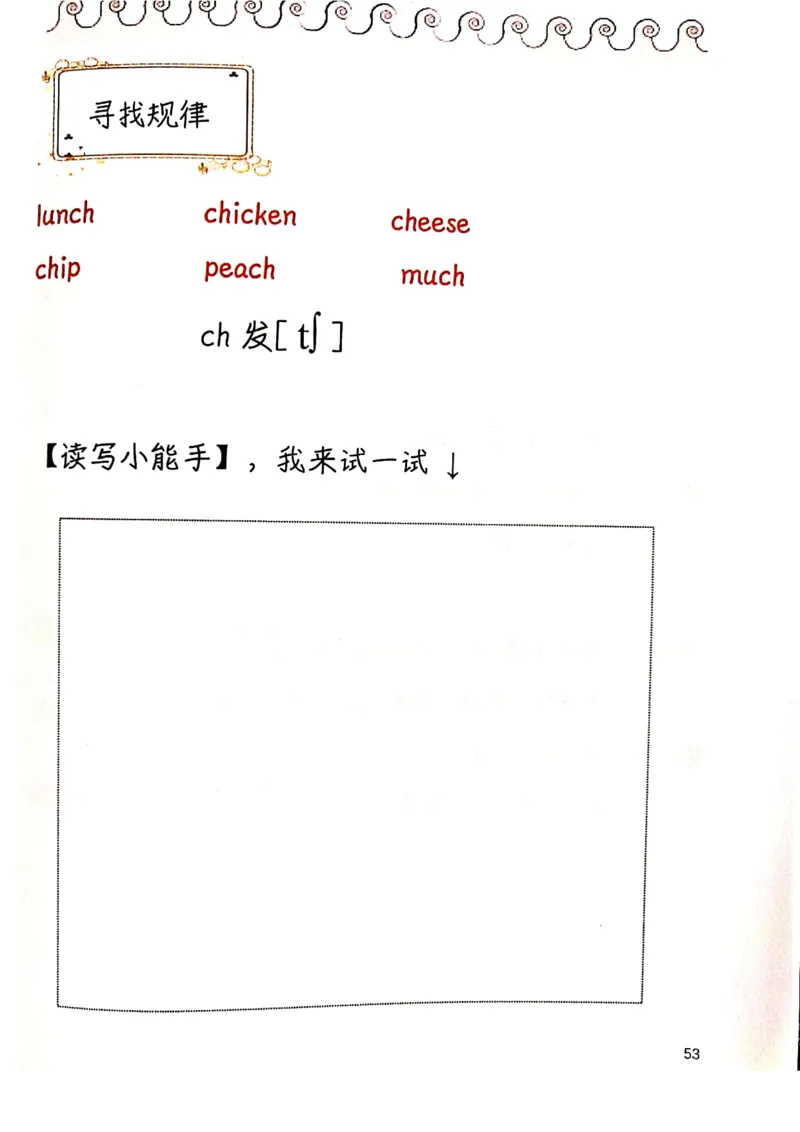 寻找规律
lunch chicken cheese
chip peach much
ch 发[ tʃ ]
【读写小能手】，我来试一试 ↓
53